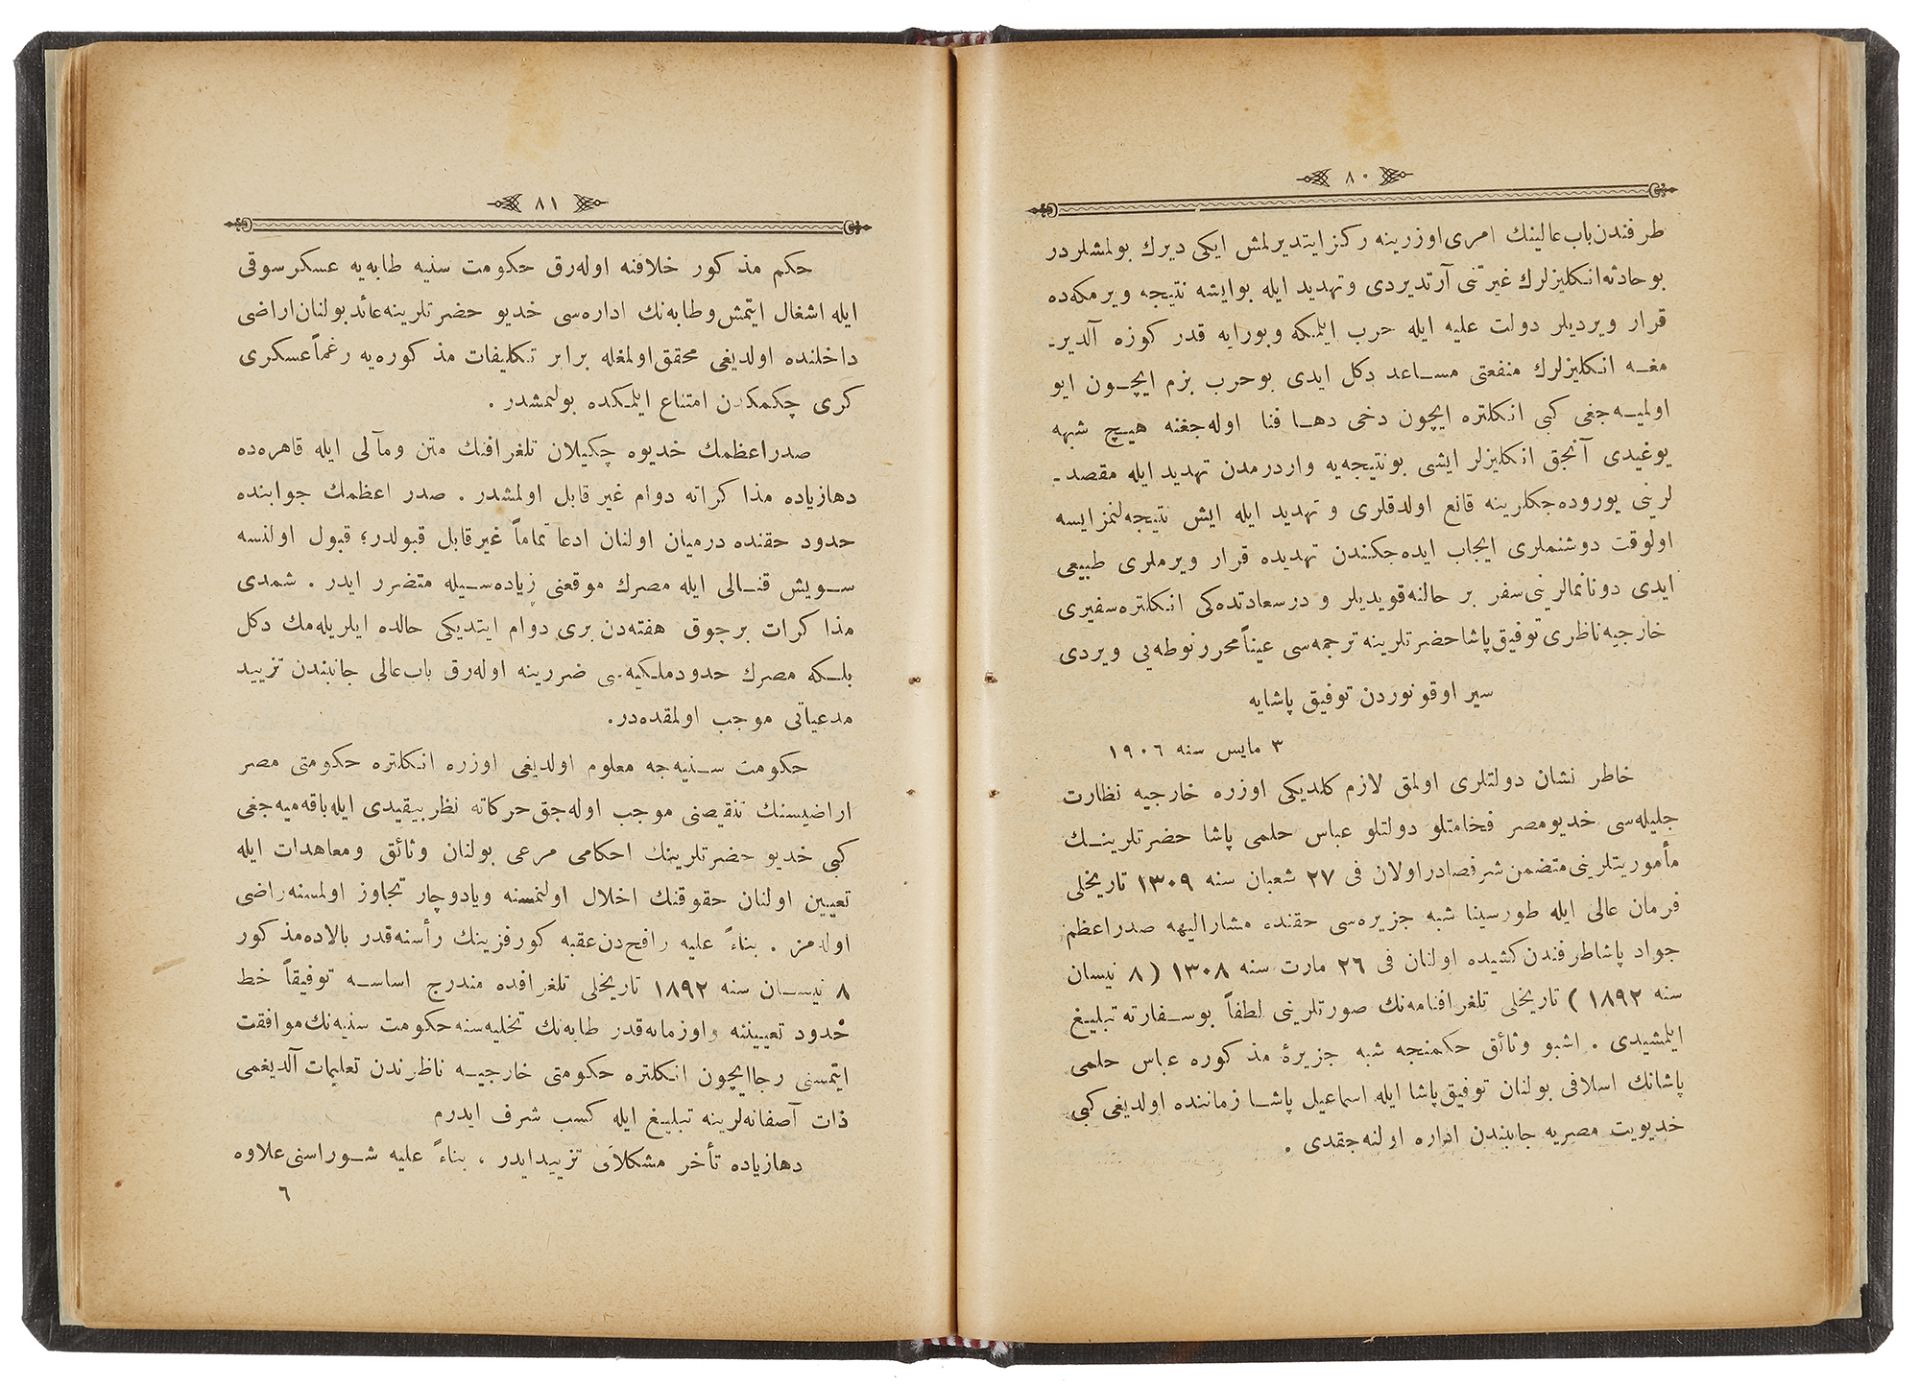 ٨٠
طرفندن باب عالينك امرى اوزرينه ركز ايتديرلمش ايكى ديرك بولمشلردر
بو حادثه انكليزلرك غيرتنى آرتديردى وتهديد ايله بوايشه نتيجه ويرمكه ده
قرار ويرديلر دولت عليه ايله حرب ايلمكه وبورايه قدر كوزه آلدير-
مغه انكليزلرك منفعتى مساعد دكل ايدى بوحرب بزم ايچون ايو
اولميه جغى كبى انكلتره ايچون دخى دها فنا اوله جغنه هيچ شبهه
يوغيدى آنجق انكليزلر ايشى بونتيجه يه واردرمدن تهديد ايله مقصد-
لرينى يوروده جكلرينه قانع اولدقلرى و تهديد ايله ايش نتيجه لنمز ايسه
اولوقت دوشنملرى ايجاب ايده جكندن تهديده قرار ويرملرى طبيعى
ايدى دونانمالرينى سفر بر حالنه قويديلر و درسعادتده كى انكلتره سفيرى
خارجيه ناظرى توفيق پاشا حضرتلرينه ترجمه سى عيناً محرر نوطه يى ويردى
سير اوقونوردن توفيق پاشايه
٣ مايس سنه ١٩٠٦
خاطر نشان دولتلرى اولمق لازم كلديكى اوزره خارجيه نظارت
جليله سى خديو مصر فخامتلو دولتلو عباس حلمى پاشا حضرتلرينك
مأموريتلرينى متضمن شرفصادر اولان فى ٢٧ شعبان سنه ١٣٠٩ تاريخلى
فرمان عالى ايله طورسينا شبه جزيره سى حقنده مشاراليهه صدراعظم
جواد پاشا طرفندن كشيده اولنان فى ٢٦ مارت سنه ١٣٠٨ (٨ نيسان
سنه ١٨٩٢) تاريخلى تلغرافنامه نك صورتلرينى لطفاً بو سفارته تبليغ
ايلمشيدى . اشبو وثائق حكمنجه شبه جزيرۀ مذكوره عباس حلمى
پاشانك اسلافى بولنان توفيق پاشا ايله اسماعيل پاشا زماننده اولديغى كبى
خديويت مصريه جانبندن اداره اولنه جقدى .
٨١
حكم مذكور خلافنه اوله رق حكومت سنيه طابه يه عسكر سوقى
ايله اشغال ايتمش وطابه نك اداره سى خديو حضرتلرينه عائد بولنان اراضى
داخلنده اولديغى محقق اولمغله برابر تكليفات مذكوره يه رغماً عسكرى
كرى چكمكدن امتناع ايلمكده بولنمشدر .
صدراعظمك خديوه چكيلان تلغرافنك متن ومآلى ايله قاهره ده
دها زياده مذاكراته دوام غير قابل اولمشدر . صدر اعظمك جوابنده
حدود حقنده درميان اولنان ادعا تماماً غير قابل قبولدر؛ قبول اولنسه
سويش قنالى ايله مصرك موقعنى زياده سيله متضرر ايدر . شمدى
مذاكرات برچوق هفته دن برى دوام ايتديكى حالده ايلريله مك دكل
بلكه مصرك حدود ملكيه سى ضررينه اوله رق باب عالى جانبندن تزييد
مدعياتى موجب اولمقده در.
حكومت سنيه جه معلوم اولديغى اوزره انكلتره حكومتى مصر
اراضيسنك تنقيصنى موجب اوله جق حركاته نظر بيقيدى ايله باقه ميه جغى
كبى خديو حضرتلرينك احكامى مرعى بولنان وثائق ومعاهدات ايله
تعيين اولنان حقوقنك اخلال اولنمسنه ويادوچار تجاوز اولمسنه راضى
اوله مز . بناءً عليه رافح دن عقبه كورفزينك رأسنه قدر بالاده مذكور
٨ نيسان سنه ١٨٩٢ تاريخلى تلغرافده مندرج اساسه توفيقاً خط
حدود تعييننه واوزمانه قدر طابه نك تخليه سنه حكومت سنيه نك موافقت
ايتمسنى رجا ايچون انكلتره حكومتى خارجيه ناظرندن تعليمات آلديغمى
ذات آصفانه لرينه تبليغ ايله كسب شرف ايدرم
دها زياده تأخر مشكلاتى تزييد ايدر ، بناءً عليه شوراسنى علاوه
٦